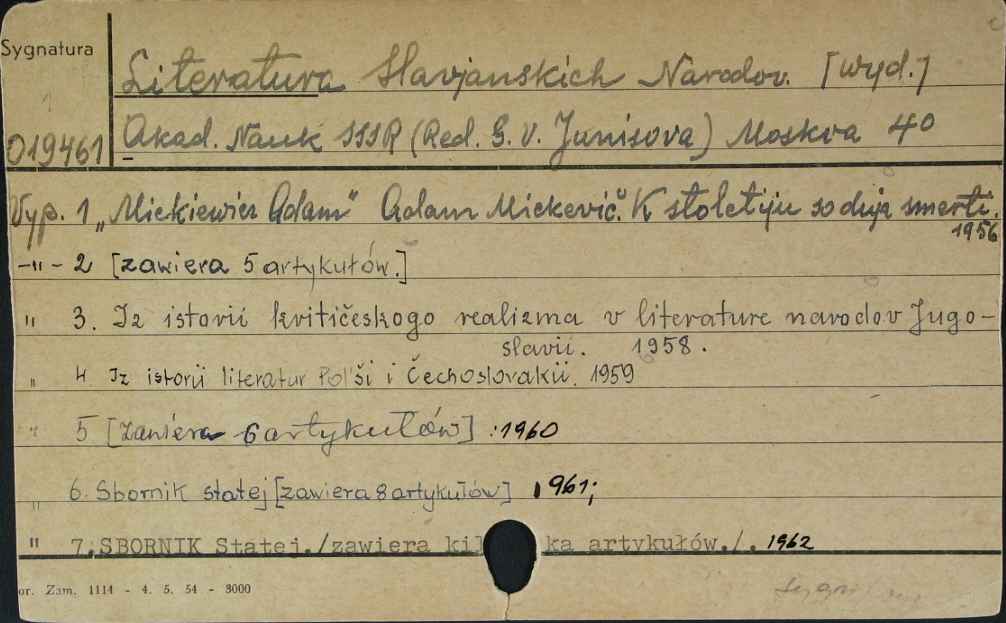 Sygnatura
019461
Literatura Slavjanskich Narodov. [wyd.]
Akad. Nauk SSSR (Red. G. V. Junisova) Moskva 4º
Vyp. 1 „Mickiewicz Adam" Adam Mickevič. K stoletiju so dnja smerti.
1956
-"- 2 [zawiera 5 artykułów.]
" 3. Iz istorii kritičeskogo realizma v literature narodov Jugo-
slavii. 1958.
" 4 Iz istorii literatur Pol'ši i Čechoslovakii. 1959
" 5 [zawiera 6 artykułów] : 1960
" 6. Sbornik statej [zawiera 8 artykułów] 1961;
" 7. SBORNIK Statej./zawiera kilka artykułów./. 1962
or. Zam. 1114 - 4. 5. 54 - 3000